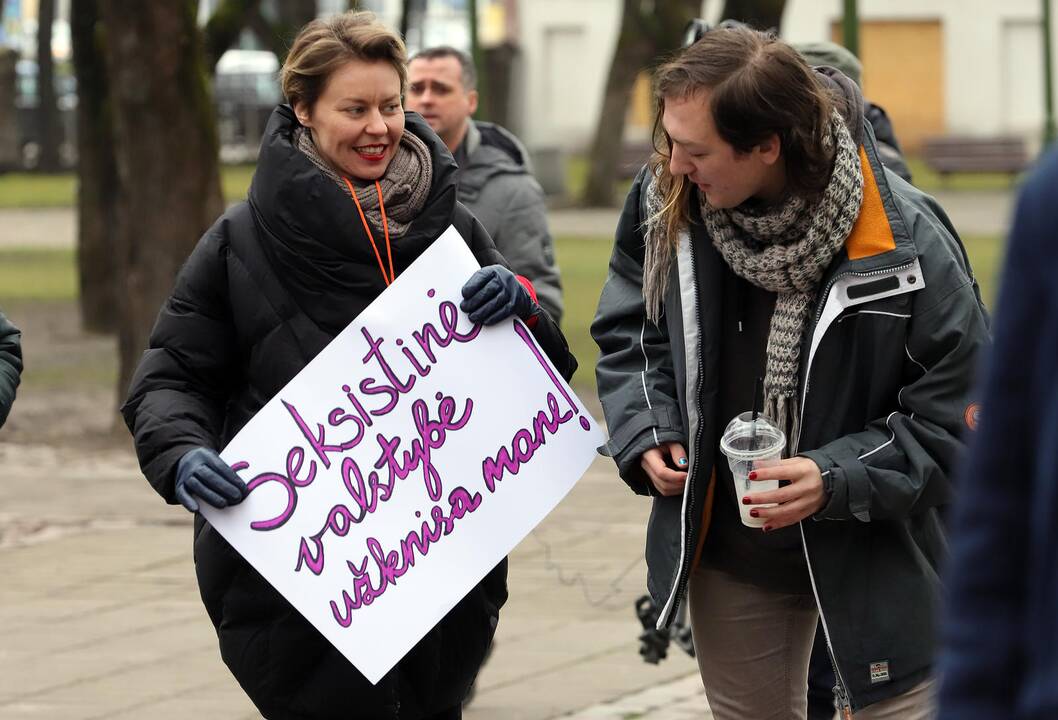 Seksistinė
valstybė
užknisa mane!